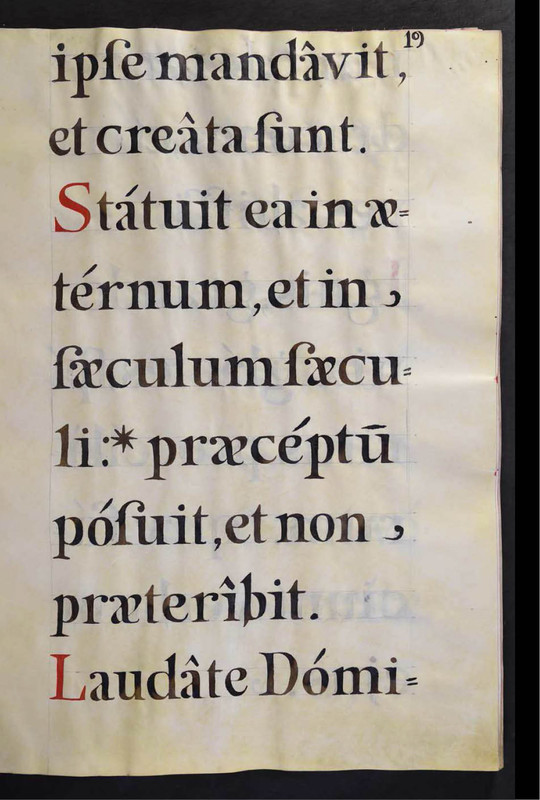 19
ipſe mandâvit,
et creâta ſunt.
Státuit ea in æ=
térnum, et in ,
ſæculum ſæcu=
li:* præcéptū
póſuit, et non ,
præterîbit.
Laudâte Dómi=